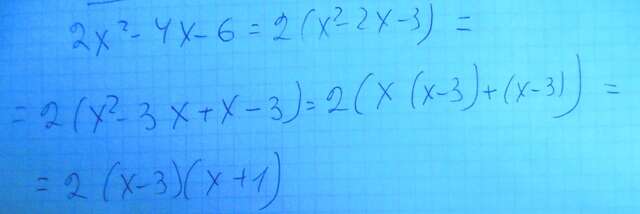 2x²-4x-6=2(x²-2x-3)=
=2(x²-3x+x-3)=2(x(x-3)+(x-3))=
=2(x-3)(x+1)